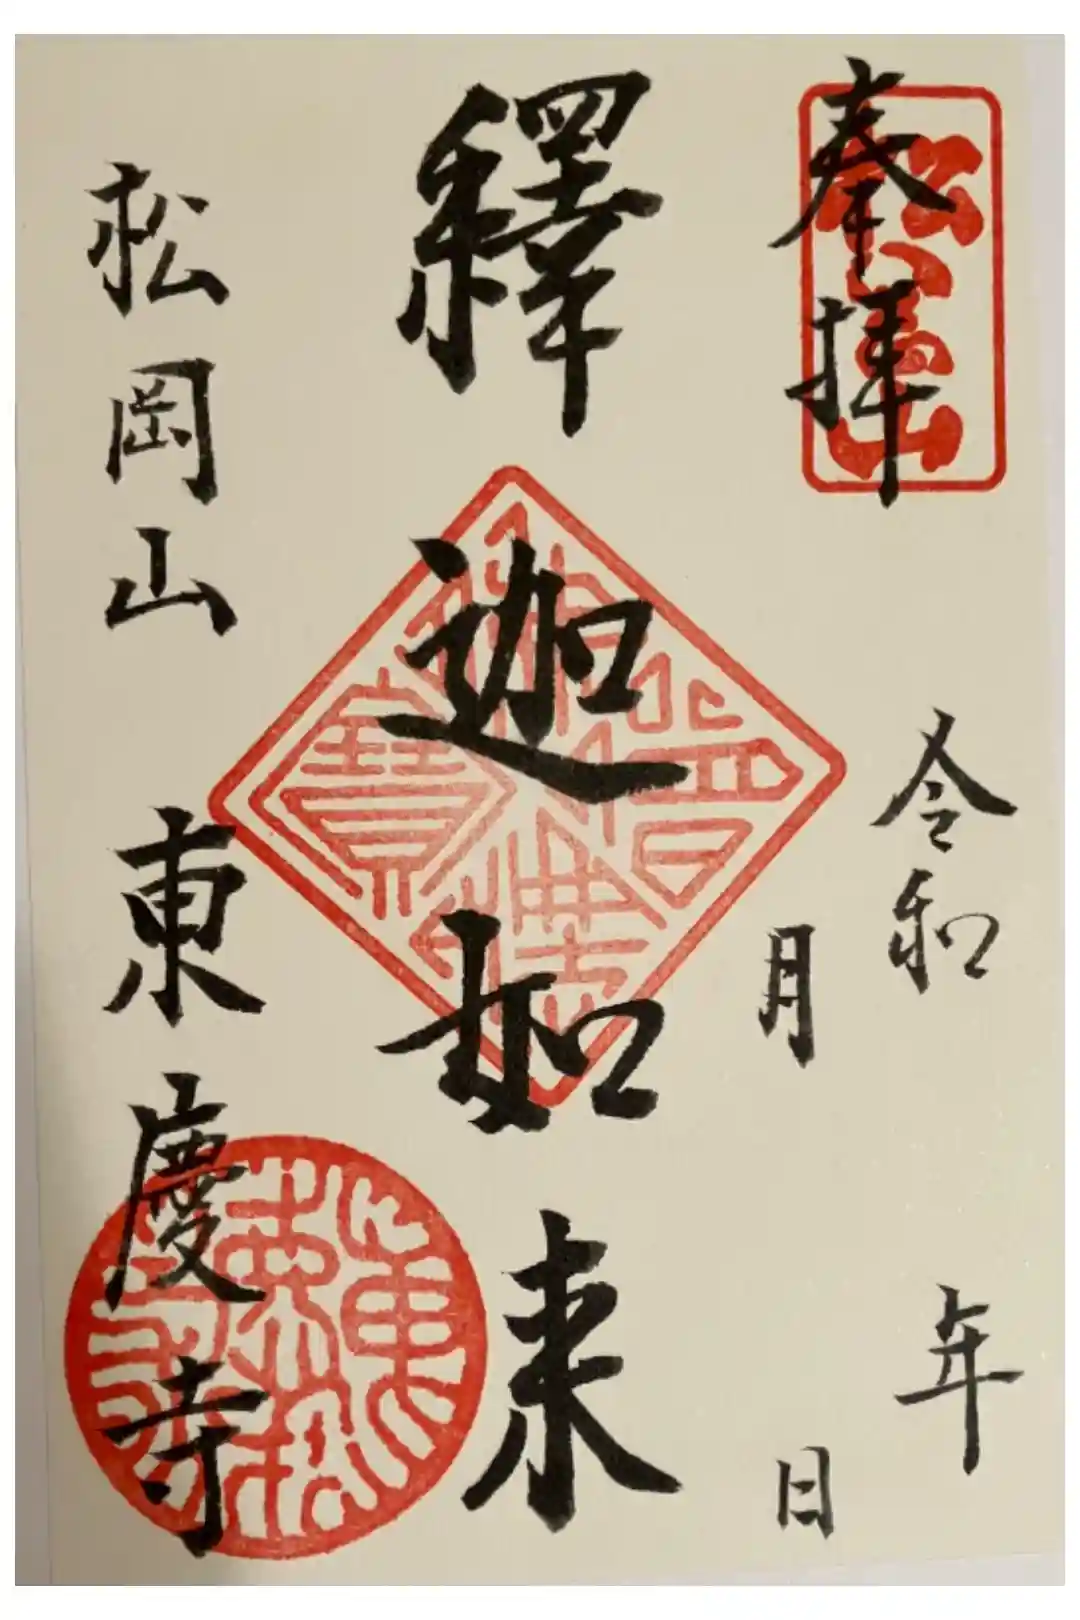 奉拝
令和 年
月 日
釋迦如来
松岡山 東慶寺
松岡山